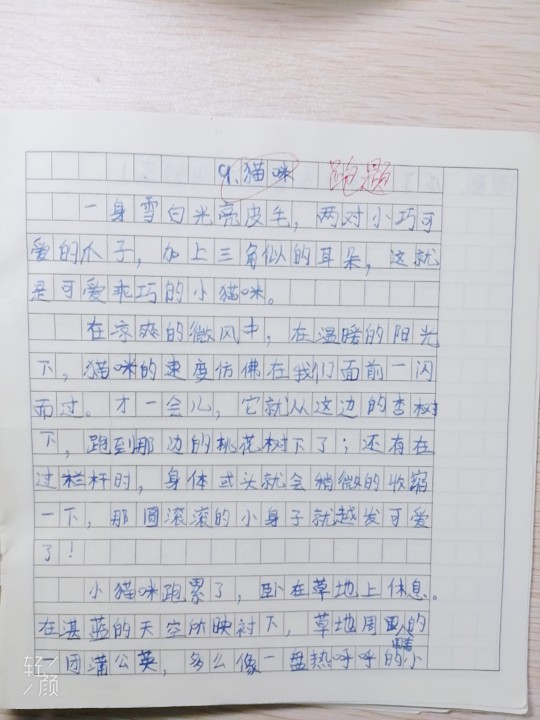 9.猫咪 跑题
一身雪白光亮皮毛，两对小巧可
爱的爪子，加上三角似的耳朵，这就
是可爱乖巧的小猫咪。
在凉爽的微风中，在温暖的阳光
下，猫咪的速度仿佛在我们面前一闪
而过。才一会儿，它就从这边的杏树
下，跑到那边的桃花树下了；还有在
过栏杆时，身体或头就会稍微的收缩
一下，那圆滚滚的小身子就越发可爱
了！
小猫咪跑累了，卧在草地上休息。
在湛蓝的天空所映衬下，草地周围的
团蒲公英，多么像一盘热呼呼的小
轻颜